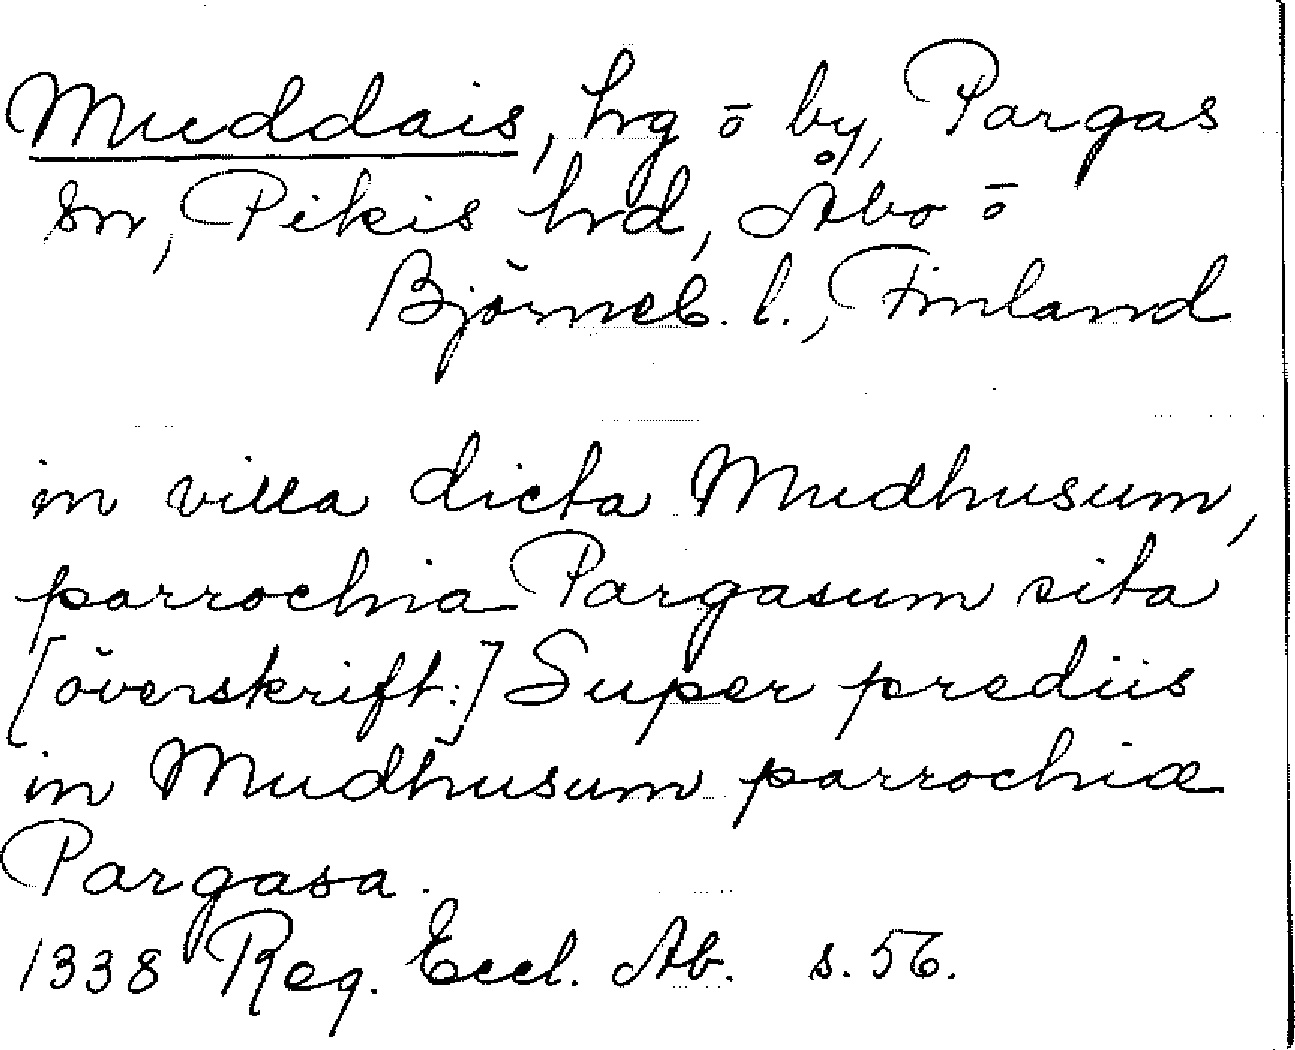 Muddais, hrg ō by, Pargas
sn, Pikis hrd, Åbo ō
Björneb. l., Finland
in villa dicta Mudhusum,
parrochia Pargasum sita
[överskrift:] Super prediis
in Mudhusum parrochiæ
Pargasa.
1338 Reg. Eccl. Ab. s. 56.